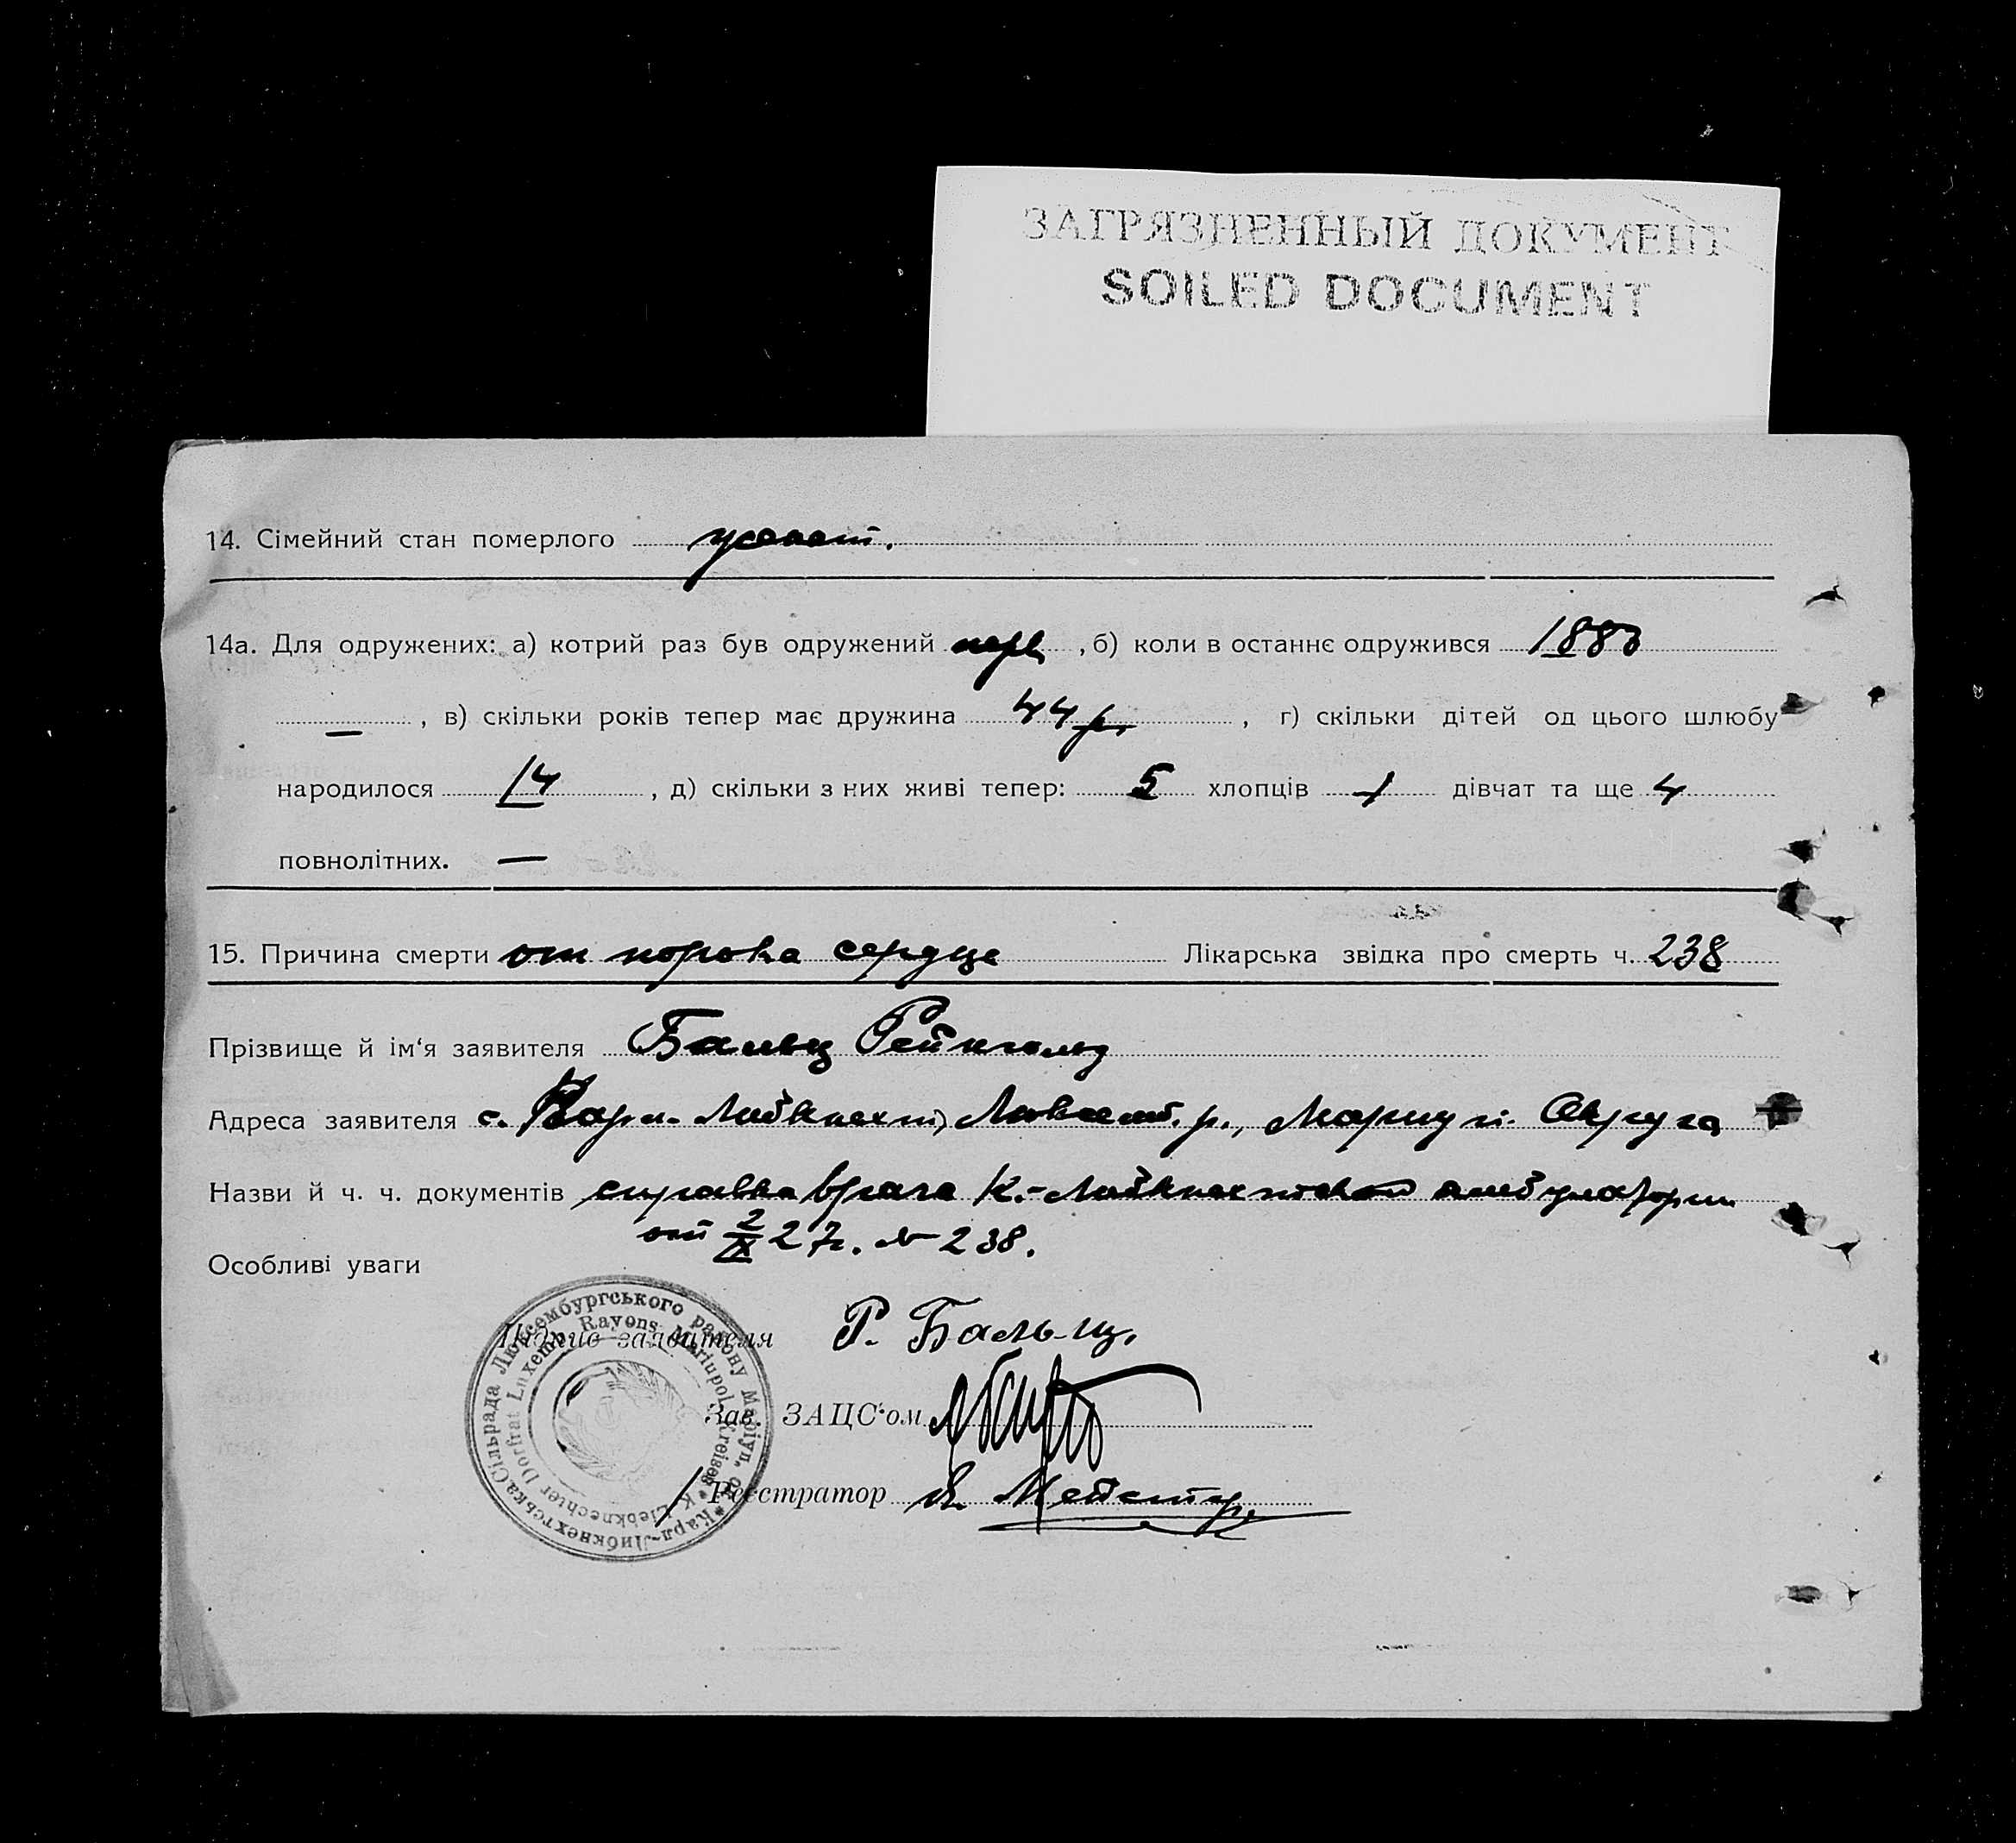 ЗАГРЯЗНЕННЫЙ ДОКУМЕНТ
SOILED DOCUMENT
14. Сімейний стан померлого
14а. Для одружених: а) котрий раз був одружений перв , б) коли в останнє одружився 1883
— , в) скільки років тепер має дружина 44 р. , г) скільки дітей од цього шлюбу
народилося 14 , д) скільки з них живі тепер: 5 хлопців 1 дівчат та ще 4
повнолітних. —
15. Причина смерти от порока сердце Лікарська звідка про смерть ч. 238
Прізвище й ім'я заявителя Бальц Рейнгольд
Адреса заявителя с. Карл-Либкнехт, р., Мариуп. Округа
Назви й ч. ч. документів справка врача К.-Либкнехтской амбулатории
от 2/IX 27г. № 238.
Особливі уваги
Підпис заявителя Р. Бальц.
Зав. ЗАЦС'ом
Реєстратор Мейстер
Карл-Либкнехтська Сільрада Люксембургського району Маріуп. окр.
K. Liebknechter Dorfrat Luxemb. Rayons Mariupol. Kreises